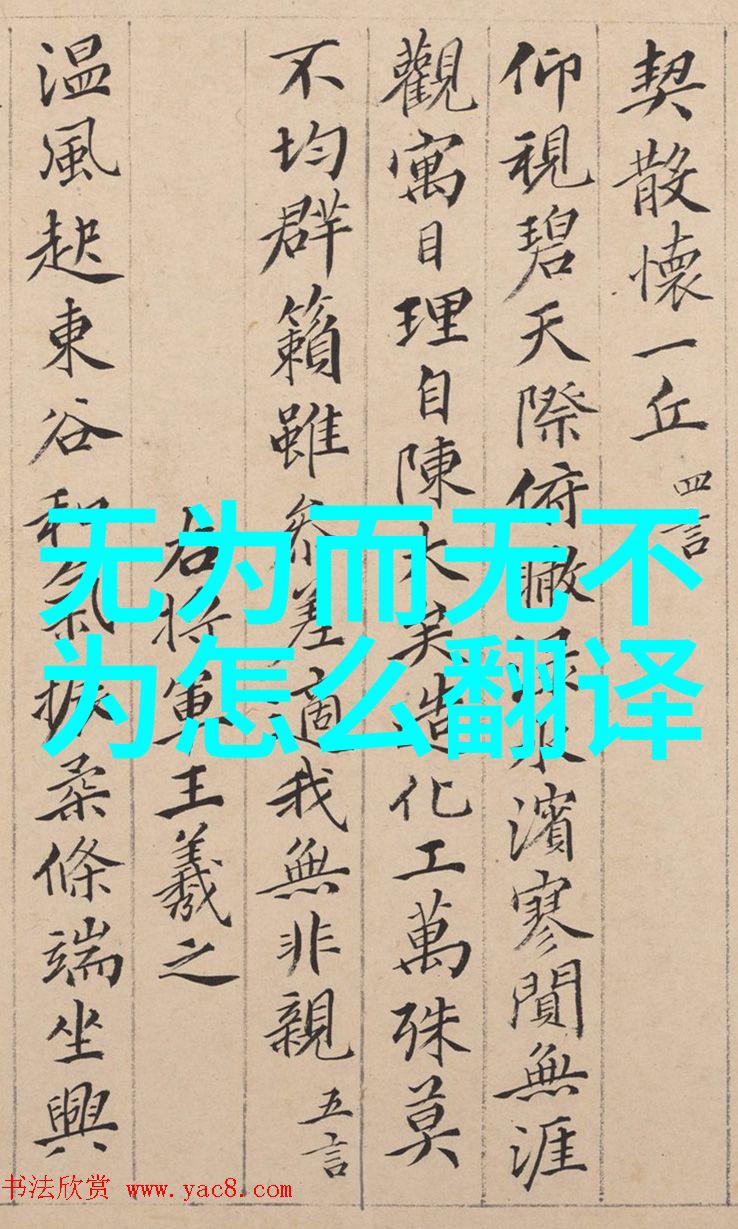 契散懷一丘 四言
仰視碧天際俯瞰淥水濱寥閴無涯
觀寓目理自陳大矣造化工萬殊莫
不均群籟雖參差適我無非親 五言
右將軍王羲之
温風起東谷和氣振柔條端坐興
无为而无不
为怎么翻译
书法欣赏 www.yac8.com